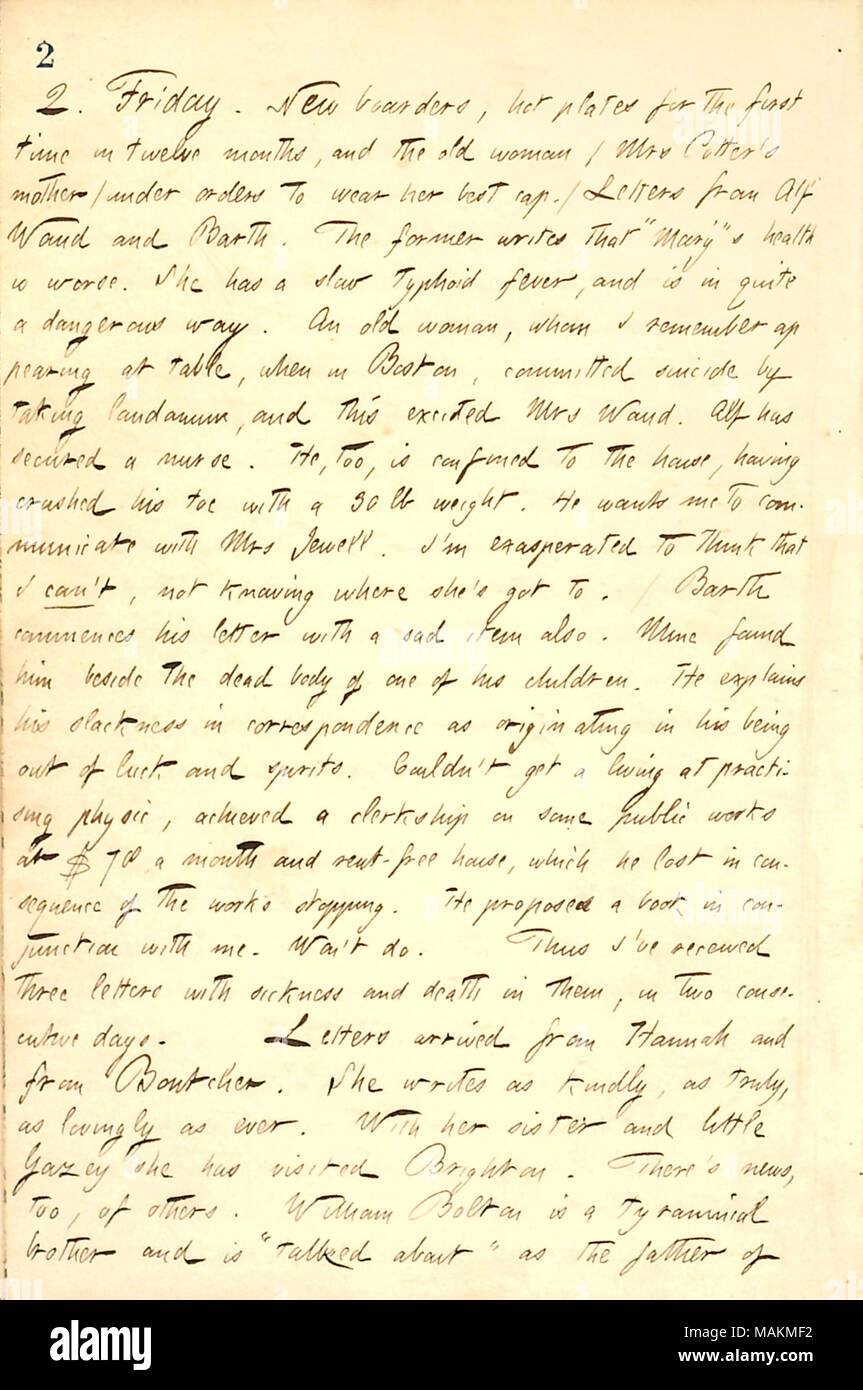 2
2. Friday. New boarders, hot plates for the first
time in twelve months, and the old woman / Mrs Potter's
mother / under orders to wear her best cap. / Letters from Alf
Waud and Barth. The former writes that "Mary"s health
is worse. She has a slow typhoid fever, and is in quite
a dangerous way. An old woman, whom I remember ap
pearing at table, when in Boston, committed suicide by
taking laudanum, and this excited Mrs Waud. Alf has
secured a nurse. He, too, is confined to the house, having
crushed his toe with a 30 lb weight. He wants me to com-
municate with Mrs Jewell. I'm exasperated to think that
I can't, not knowing where she's got to. / Barth
commences his letter with a sad item also. Mine found
him beside the dead body of one of his children. He explains
his slackness in correspondence as originating in his being
out of luck and spirits. Couldn't get a living at practi-
sing physic, achieved a clerkship on some public works
at $78 a month and rent-free house, which he lost in con-
sequence of the works stopping. He proposes a book in con-
junction with me. Won't do. Thus I've received
three letters with sickness and death in them, in two conse-
cutive days. Letters arrived from Hannah and
from Boutcher. She writes as kindly, as truly,
as lovingly as ever. With her sister and little
Gazey she has visited Brighton. There's news,
too, of others. William Bolton is a tyrannical
brother and is "talked about" as the father of
alamy
Image ID: MAKMF2
www.alamy.com